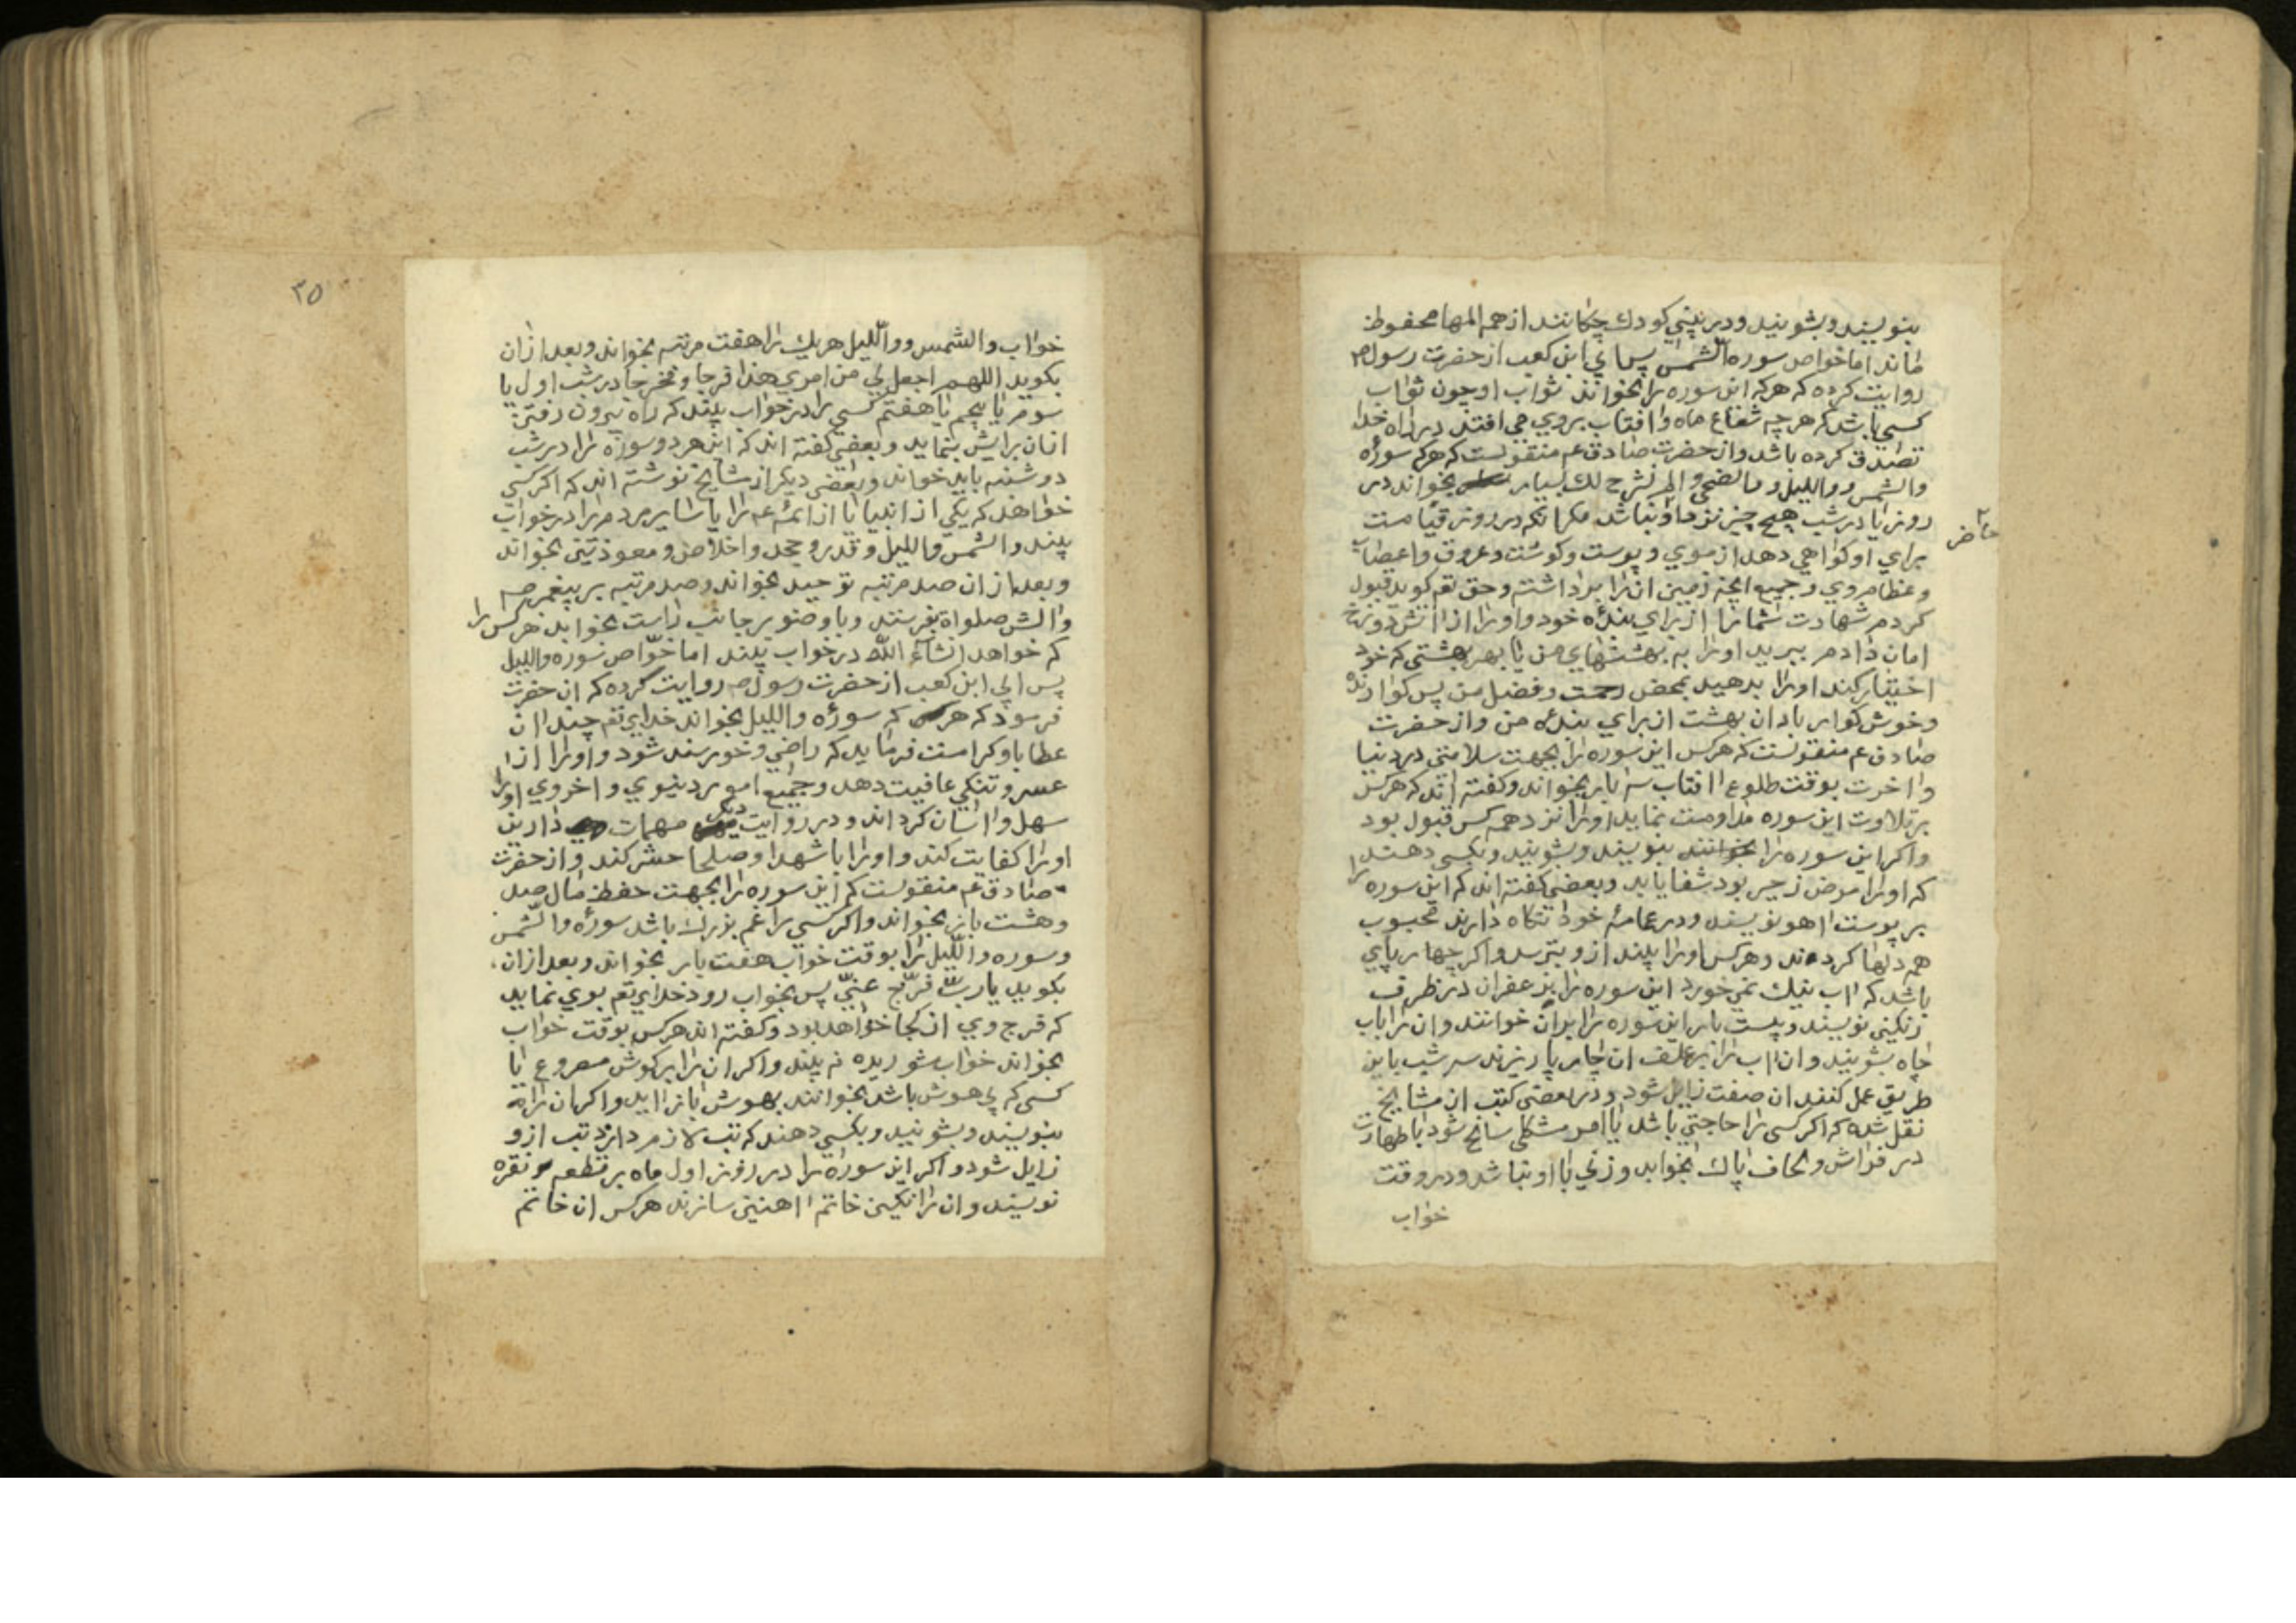 بنویسند و بشویند و در بینی کودک چکانند از همه المها محفوظ
ماند اما خواص سوره الشمس پس ابي ابن کعب از حضرت رسول ص
روایت کرده که هر که این سوره را بخواند ثواب او چون ثواب
کسی باشد که هر چه شعاع ماه و افتاب بروی می افتد در راه خدا
تصدق کرده باشد و از حضرت صادق ع م منقولست که هر که سورهٔ
والشمس و واللیل و والضحی و الم نشرح لک بسیار بخواند در
روز یا در شب هیچ چیز نزد او نباشد مکر انکه در روز قیامت
حاضر
برای او کواهی دهد از موی و پوست و کوشت و عروق و اعصاب
و عظام وی و جمیع انچه زمین انرا برداشته و حق تع کوید قبول
کردم شهادت شما را از برای بندهٔ خود و او را از اتش دوزخ
امان دادم ببرید او را به بهشتهای من تا بهر بهشتی که خود
اختیار کند او را بدهید بمحض رحمت و فضل من پس کوارنده
و خوش کوار باد ان بهشت از برای بندهٔ من و از حضرت
صادق ع م منقولست که هر کس این سوره را بجهت سلامتی در دنیا
و اخرت بوقت طلوع افتاب سه بار بخواند و کفته اند که هر کس
بر تلاوت این سوره مداومت نماید او را نزد همه کس قبول بود
و اکر این سوره را بخوانند بنویسند و بشویند و بکسی دهند
که او را مرض زحیر بود شفا یابد و بعضی کفته اند که این سوره را
بر پوست اهو نویسند و در عمامهٔ خود نکاه دارند محبوب
همه دلها کردند و هر کس او را بیند ازو بترسد و اکر چهار پای
باشد که اب نیک نمی خورد این سوره را بزعفران در ظرف
رنکینی نویسند و بیست بار این سوره را بران خوانند و ان را باب
چاه بشویند و ان اب را بر علف ان چارپا ریزند سه شب باین
طریق عمل کنند ان صفت زایل شود و در بعضی کتب از مشایخ
نقل شده که اکر کسی را حاجتی باشد یا امر مشکلی سانح شود با طهارت
در فراش و لحاف پاک بخوابد و زنی با او نباشد و در وقت
خواب
۳۵
خواب والشمس و واللیل هر یک را هفت مرتبه بخواند و بعد از ان
بکوید اللهم اجعل لي من امري هذا فرجا و مخرجا در شب اول یا
سوم یا پنجم یا هفتم کسی را در خواب بیند که راه بیرون رفتن
ازان برایش بنماید و بعضی کفته اند که این هر دو سوره را در شب
دوشنبه باید خواند و بعضی دیکر از مشایخ نوشته اند که اکر کسی
خواهد که یکی از انبیا یا از ائمه ع م را یا سایر مردم را در خواب
بیند والشمس واللیل و قدر و جحد و اخلاص و معوذتین بخواند
و بعد از ان صد مرتبه توحید بخواند و صد مرتبه بر پیغمبر ص م
و الش صلواة بفرستد و با وضو بر جانب راست بخوابد هر کس را
که خواهد انشآء اللّه در خواب بیند اما خوّاص سوره واللیل
پس ابي ابن کعب از حضرت رسول ص م روایت کرده که ان حضرت
فرمود که هر که سورهٔ واللیل بخواند خدای تع چندان
عطا باو کرامت فرماید که راضی و خورسند شود و او را از
عسر و تنکی عافیت دهد و جمیع امور دنیوی و اخروی او را
سهل و اسان کرداند و در روایت دیکر مهمات دارین
او را کفایت کند و او را با شهدا و صلحا حشر کند و از حضرت
صادق ع م منقولست که این سوره را بجهت حفظ مال صد
و هشت بار بخواند و اکر کسی را غم بزرک باشد سورهٔ والشّمس
و سوره واللّیل را بوقت خواب هفت بار بخواند و بعد از ان
بکوید یا ربّ فرّج عنّی پس بخواب رود خدای تع بوی نماید
که فرج وی از کجا خواهد بود و کفته اند هر کس بوقت خواب
بخواند خواب شوریده نه بیند و اکر ان را بر کوش مصروع یا
کسی که بی هوش باشد بخوانند بهوش باز اید و اکر ان را
بنویسند و بشویند و بکسی دهند که تب لازم دارد تب ازو
زایل شود و اکر این سوره را در روز اول ماه بر قطعه نقره
نویسند و ان را نکین خاتم اهنین سازند هر کس ان خاتم